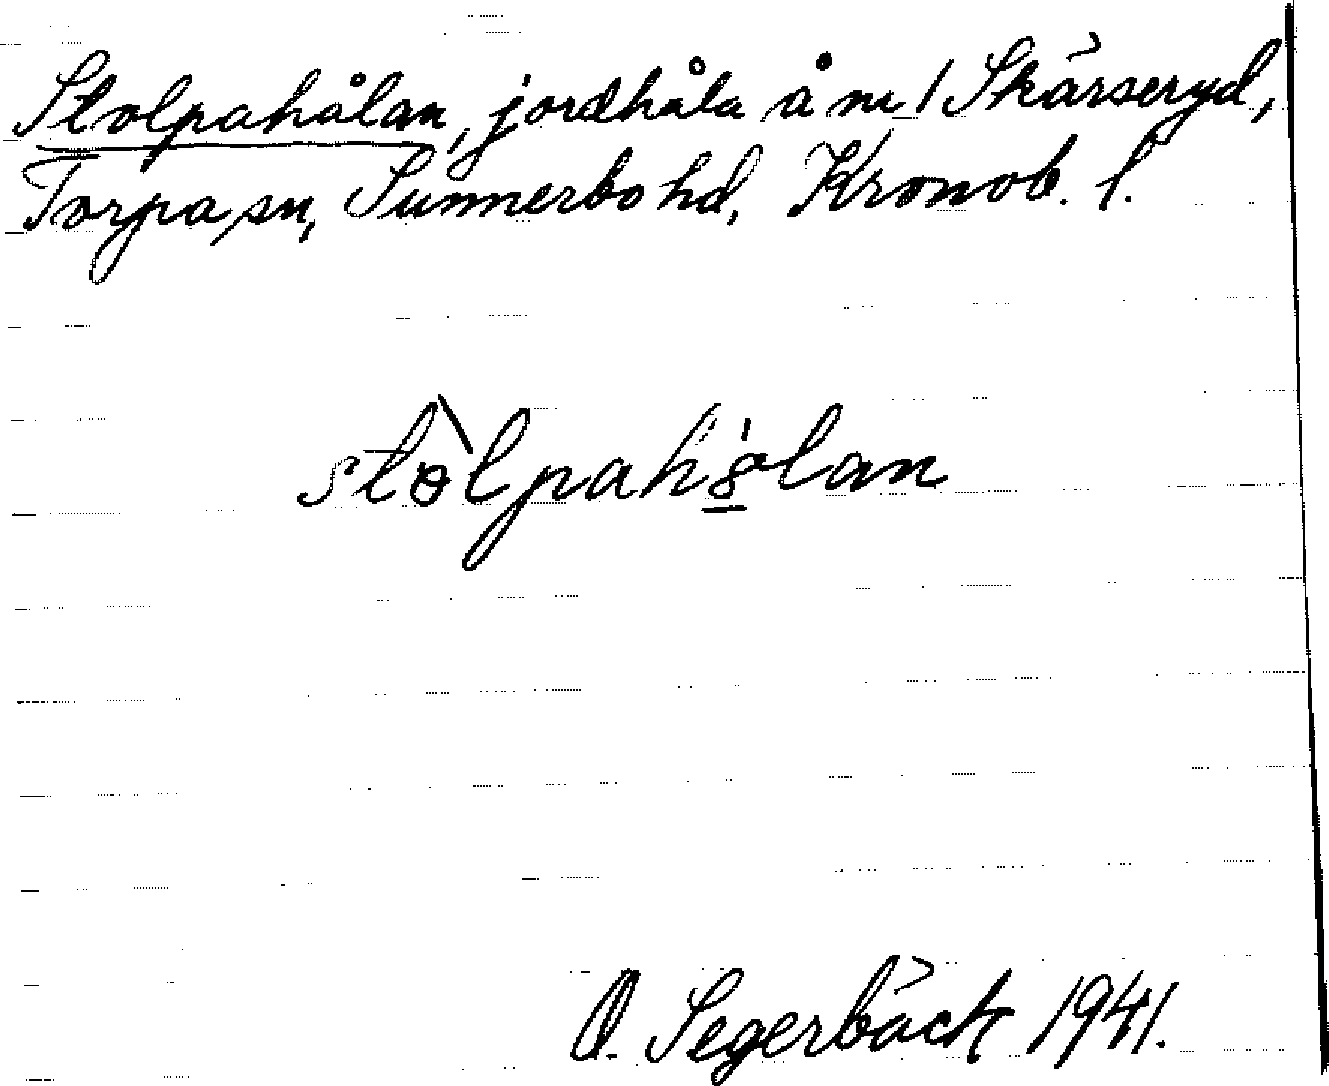 Stolpahålan, jordhåla å nr 1 Skärseryd,
Torpa sn, Sunnerbo hd, Kronob. l.
stòlpah'ålan
O. Segerbäck 1941.